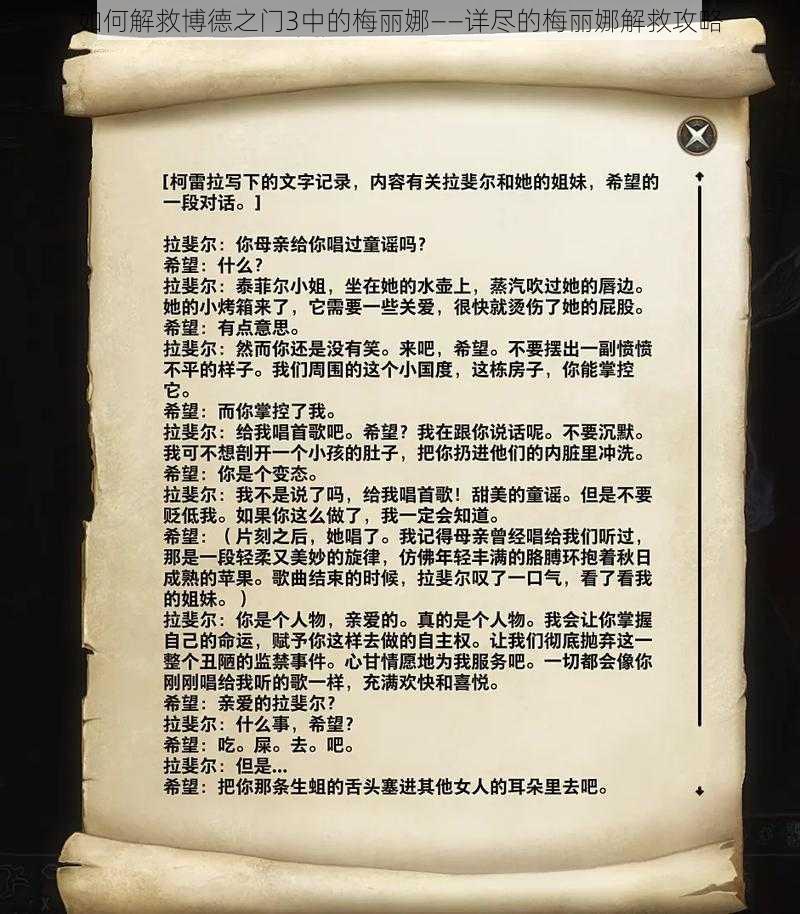 如何解救博德之门3中的梅丽娜——详尽的梅丽娜解救攻略
[柯雷拉写下的文字记录，内容有关拉斐尔和她的姐妹，希望的
一段对话。]
拉斐尔：你母亲给你唱过童谣吗？
希望：什么？
拉斐尔：泰菲尔小姐，坐在她的水壶上，蒸汽吹过她的唇边。
她的小烤箱来了，它需要一些关爱，很快就烫伤了她的屁股。
希望：有点意思。
拉斐尔：然而你还是没有笑。来吧，希望。不要摆出一副愤愤
不平的样子。我们周围的这个小国度，这栋房子，你能掌控
它。
希望：而你掌控了我。
拉斐尔：给我唱首歌吧。希望？我在跟你说话呢。不要沉默。
我可不想剖开一个小孩的肚子，把你扔进他们的内脏里冲洗。
希望：你是个变态。
拉斐尔：我不是说了吗，给我唱首歌！甜美的童谣。但是不要
贬低我。如果你这么做了，我一定会知道。
希望：（片刻之后，她唱了。我记得母亲曾经唱给我们听过，
那是一段轻柔又美妙的旋律，仿佛年轻丰满的胳膊环抱着秋日
成熟的苹果。歌曲结束的时候，拉斐尔叹了一口气，看了看我
的姐妹。）
拉斐尔：你是个人物，亲爱的。真的是个人物。我会让你掌握
自己的命运，赋予你这样去做的自主权。让我们彻底抛弃这一
整个丑陋的监禁事件。心甘情愿地为我服务吧。一切都会像你
刚刚唱给我听的歌一样，充满欢快和喜悦。
希望：亲爱的拉斐尔？
拉斐尔：什么事，希望？
希望：吃。屎。去。吧。
拉斐尔：但是...
希望：把你那条生蛆的舌头塞进其他女人的耳朵里去吧。